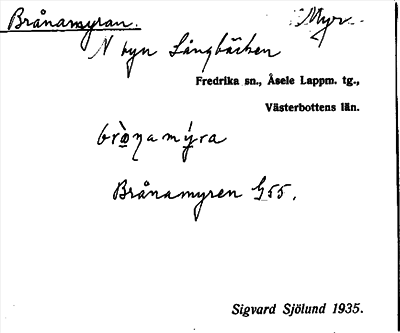 Brånamyran. Myr.
N byn Långbäcken
Fredrika sn., Åsele Lappm. tg.,
Västerbottens län.
bròn̥amý̥ra
Brånamyren G55.
Sigvard Sjölund 1935.